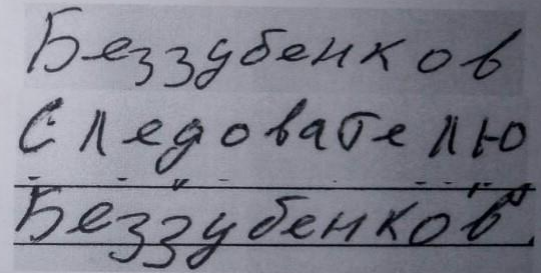 Беззубенков
Следователю
Беззубенков